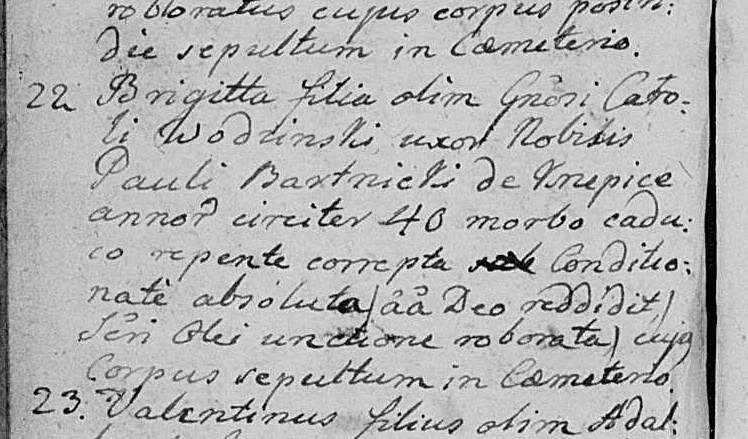 roboratus cujus corpus postri:
die sepultum in Cœmeterio.
22 Brigitta filia olim Gn̄osi Caro:
li Wodzinski uxor Nobilis
Pauli Bartnicki de Knepice
annor̄ circiter 40 morbo cadu:
co repente correpta Conditio:
natè absoluta, (āā Deo reddidit)
Sc̄ri Olei unctione roborata) cujꝯ
Corpus sepultum in Cœmeterio.
23. Valentinus filius olim Adal: